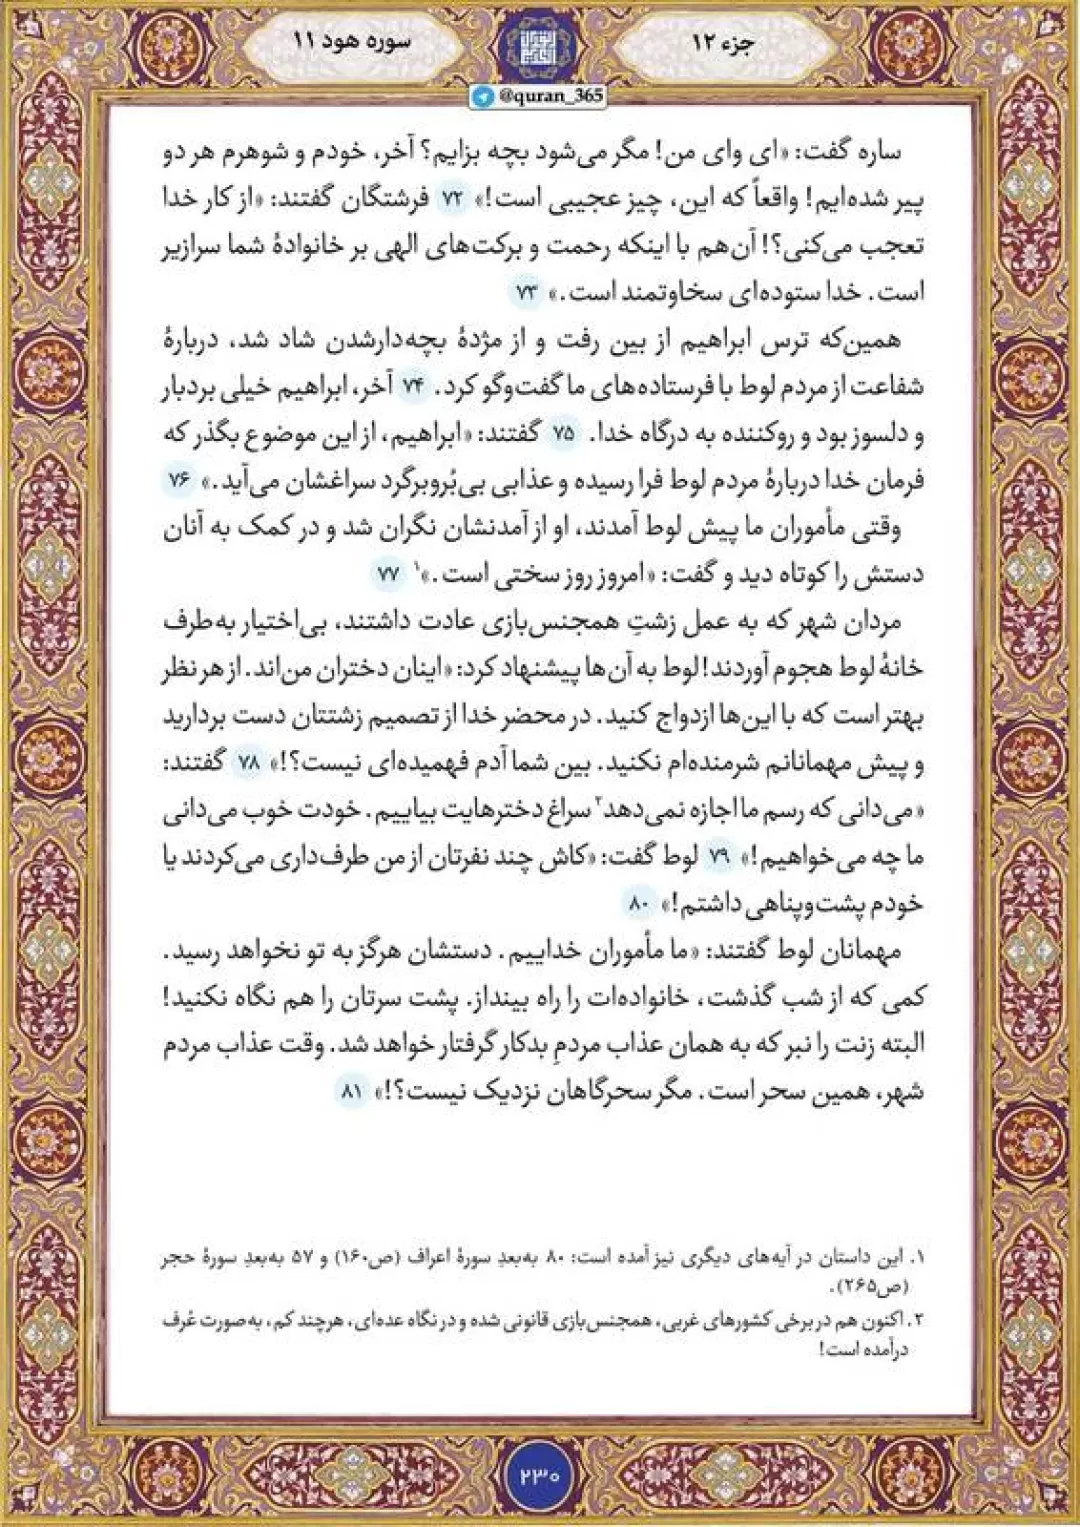 جزء ۱۲
سوره هود ۱۱
@quran_365
ساره گفت: «ای وای من! مگر می‌شود بچه بزایم؟ آخر، خودم و شوهرم هر دو
پیر شده‌ایم! واقعاً که این، چیز عجیبی است!» ۷۲ فرشتگان گفتند: «از کار خدا
تعجب می‌کنی؟! آن‌هم با اینکه رحمت و برکت‌های الهی بر خانوادهٔ شما سرازیر
است. خدا ستوده‌ای سخاوتمند است.» ۷۳
همین‌که ترس ابراهیم از بین رفت و از مژدهٔ بچه‌دارشدن شاد شد، دربارهٔ
شفاعت از مردم لوط با فرستاده‌های ما گفت‌وگو کرد. ۷۴ آخر، ابراهیم خیلی بردبار
و دلسوز بود و روکننده به درگاه خدا. ۷۵ گفتند: «ابراهیم، از این موضوع بگذر که
فرمان خدا دربارهٔ مردم لوط فرا رسیده و عذابی بی‌بُروبرگرد سراغشان می‌آید.» ۷۶
وقتی مأموران ما پیش لوط آمدند، او از آمدنشان نگران شد و در کمک به آنان
دستش را کوتاه دید و گفت: «امروز روز سختی است.»۱ ۷۷
مردان شهر که به عمل زشتِ همجنس‌بازی عادت داشتند، بی‌اختیار به‌طرف
خانهٔ لوط هجوم آوردند! لوط به آن‌ها پیشنهاد کرد: «اینان دختران من‌اند. از هر نظر
بهتر است که با این‌ها ازدواج کنید. در محضر خدا از تصمیم زشتتان دست بردارید
و پیش مهمانانم شرمنده‌ام نکنید. بین شما آدم فهمیده‌ای نیست؟!» ۷۸ گفتند:
«می‌دانی که رسم ما اجازه نمی‌دهد۲ سراغ دخترهایت بیاییم. خودت خوب می‌دانی
ما چه می‌خواهیم!» ۷۹ لوط گفت: «کاش چند نفرتان از من طرف‌داری می‌کردند یا
خودم پشت‌وپناهی داشتم!» ۸۰
مهمانان لوط گفتند: «ما مأموران خداییم. دستشان هرگز به تو نخواهد رسید.
کمی که از شب گذشت، خانواده‌ات را راه بینداز. پشت سرتان را هم نگاه نکنید!
البته زنت را نبر که به همان عذاب مردمِ بدکار گرفتار خواهد شد. وقت عذاب مردم
شهر، همین سحر است. مگر سحرگاهان نزدیک نیست؟!» ۸۱
۱. این داستان در آیه‌های دیگری نیز آمده است: ۸۰ به‌بعدِ سورهٔ اعراف (ص۱۶۰) و ۵۷ به‌بعدِ سورهٔ حجر
(ص۲۶۵).
۲. اکنون هم در برخی کشورهای غربی، همجنس‌بازی قانونی شده و در نگاه عده‌ای، هرچند کم، به‌صورت عُرف
درآمده است!
۲۳۰